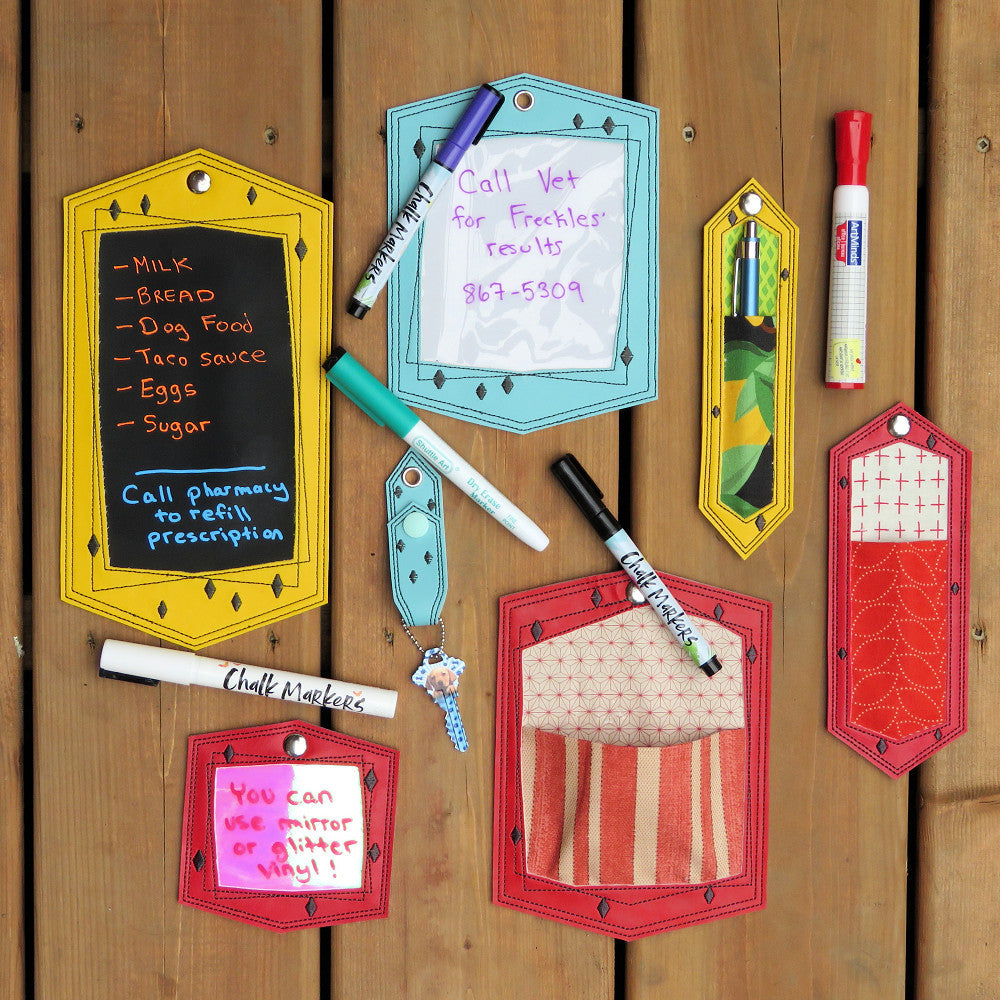 - MILK
- BREAD
- Dog Food
- Taco sauce
- Eggs
- Sugar
Call pharmacy
to refill
prescription
Chalk Markers
Call Vet
for Freckles'
results
867-5309
ArtMinds
Shuttle Art
Dry Erase
Marker
Chalk Markers
Chalk Markers
You can
use mirror
or glitter
vinyl!